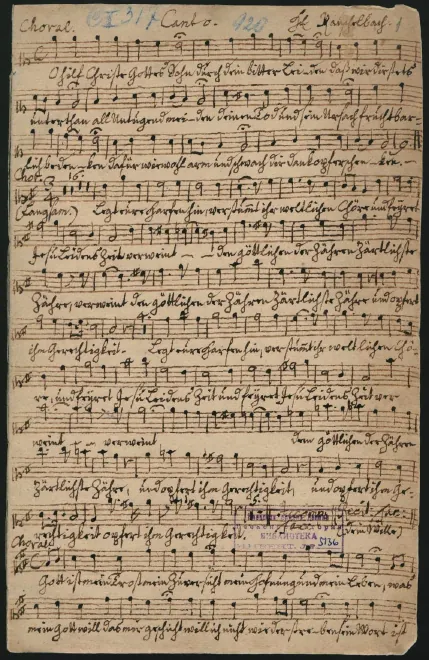 Choral. Canto.
O hilf Christe Gottes Sohn durch dein bitter Leiden daß wir dir stets
unterthan all Untugend meiden deinen Tod und sein Ursach fruchtbar-
lich bedenken dafür wiewohl arm und schwach dir Dankopfer schenken.
Chor. 16.
(Langsam.) Legt eure Harfen hin, verstummt ihr weltlichen Chöre und feyret
Jesu Leidens Zeit verweint - - den göttlichen der Zähren zärtlichste
Zähre, verweint den göttlichen der Zähren zärtlichste Zähre und opfert
ihm Gerechtigkeit. Legt eure Harfen hin, verstummt ihr weltlichen Chö-
re, und feyret Jesu Leidens Zeit und feyret Jesu Leidens Zeit ver
weint - - verweint dem göttlichen der Zähren
zärtlichste Zähre, und opfert ihm Gerechtigkeit, und opfert ihm Ge-
rechtigkeit opfert ihm Gerechtigkeit.
БИБЛИОТЕКА
5136
Choral
Gott ist mein Trost mein Zuversicht mein Hofnung und mein Leben, was
mein Gott will das mir geschicht will ich nicht widerstreben sein Wort ist